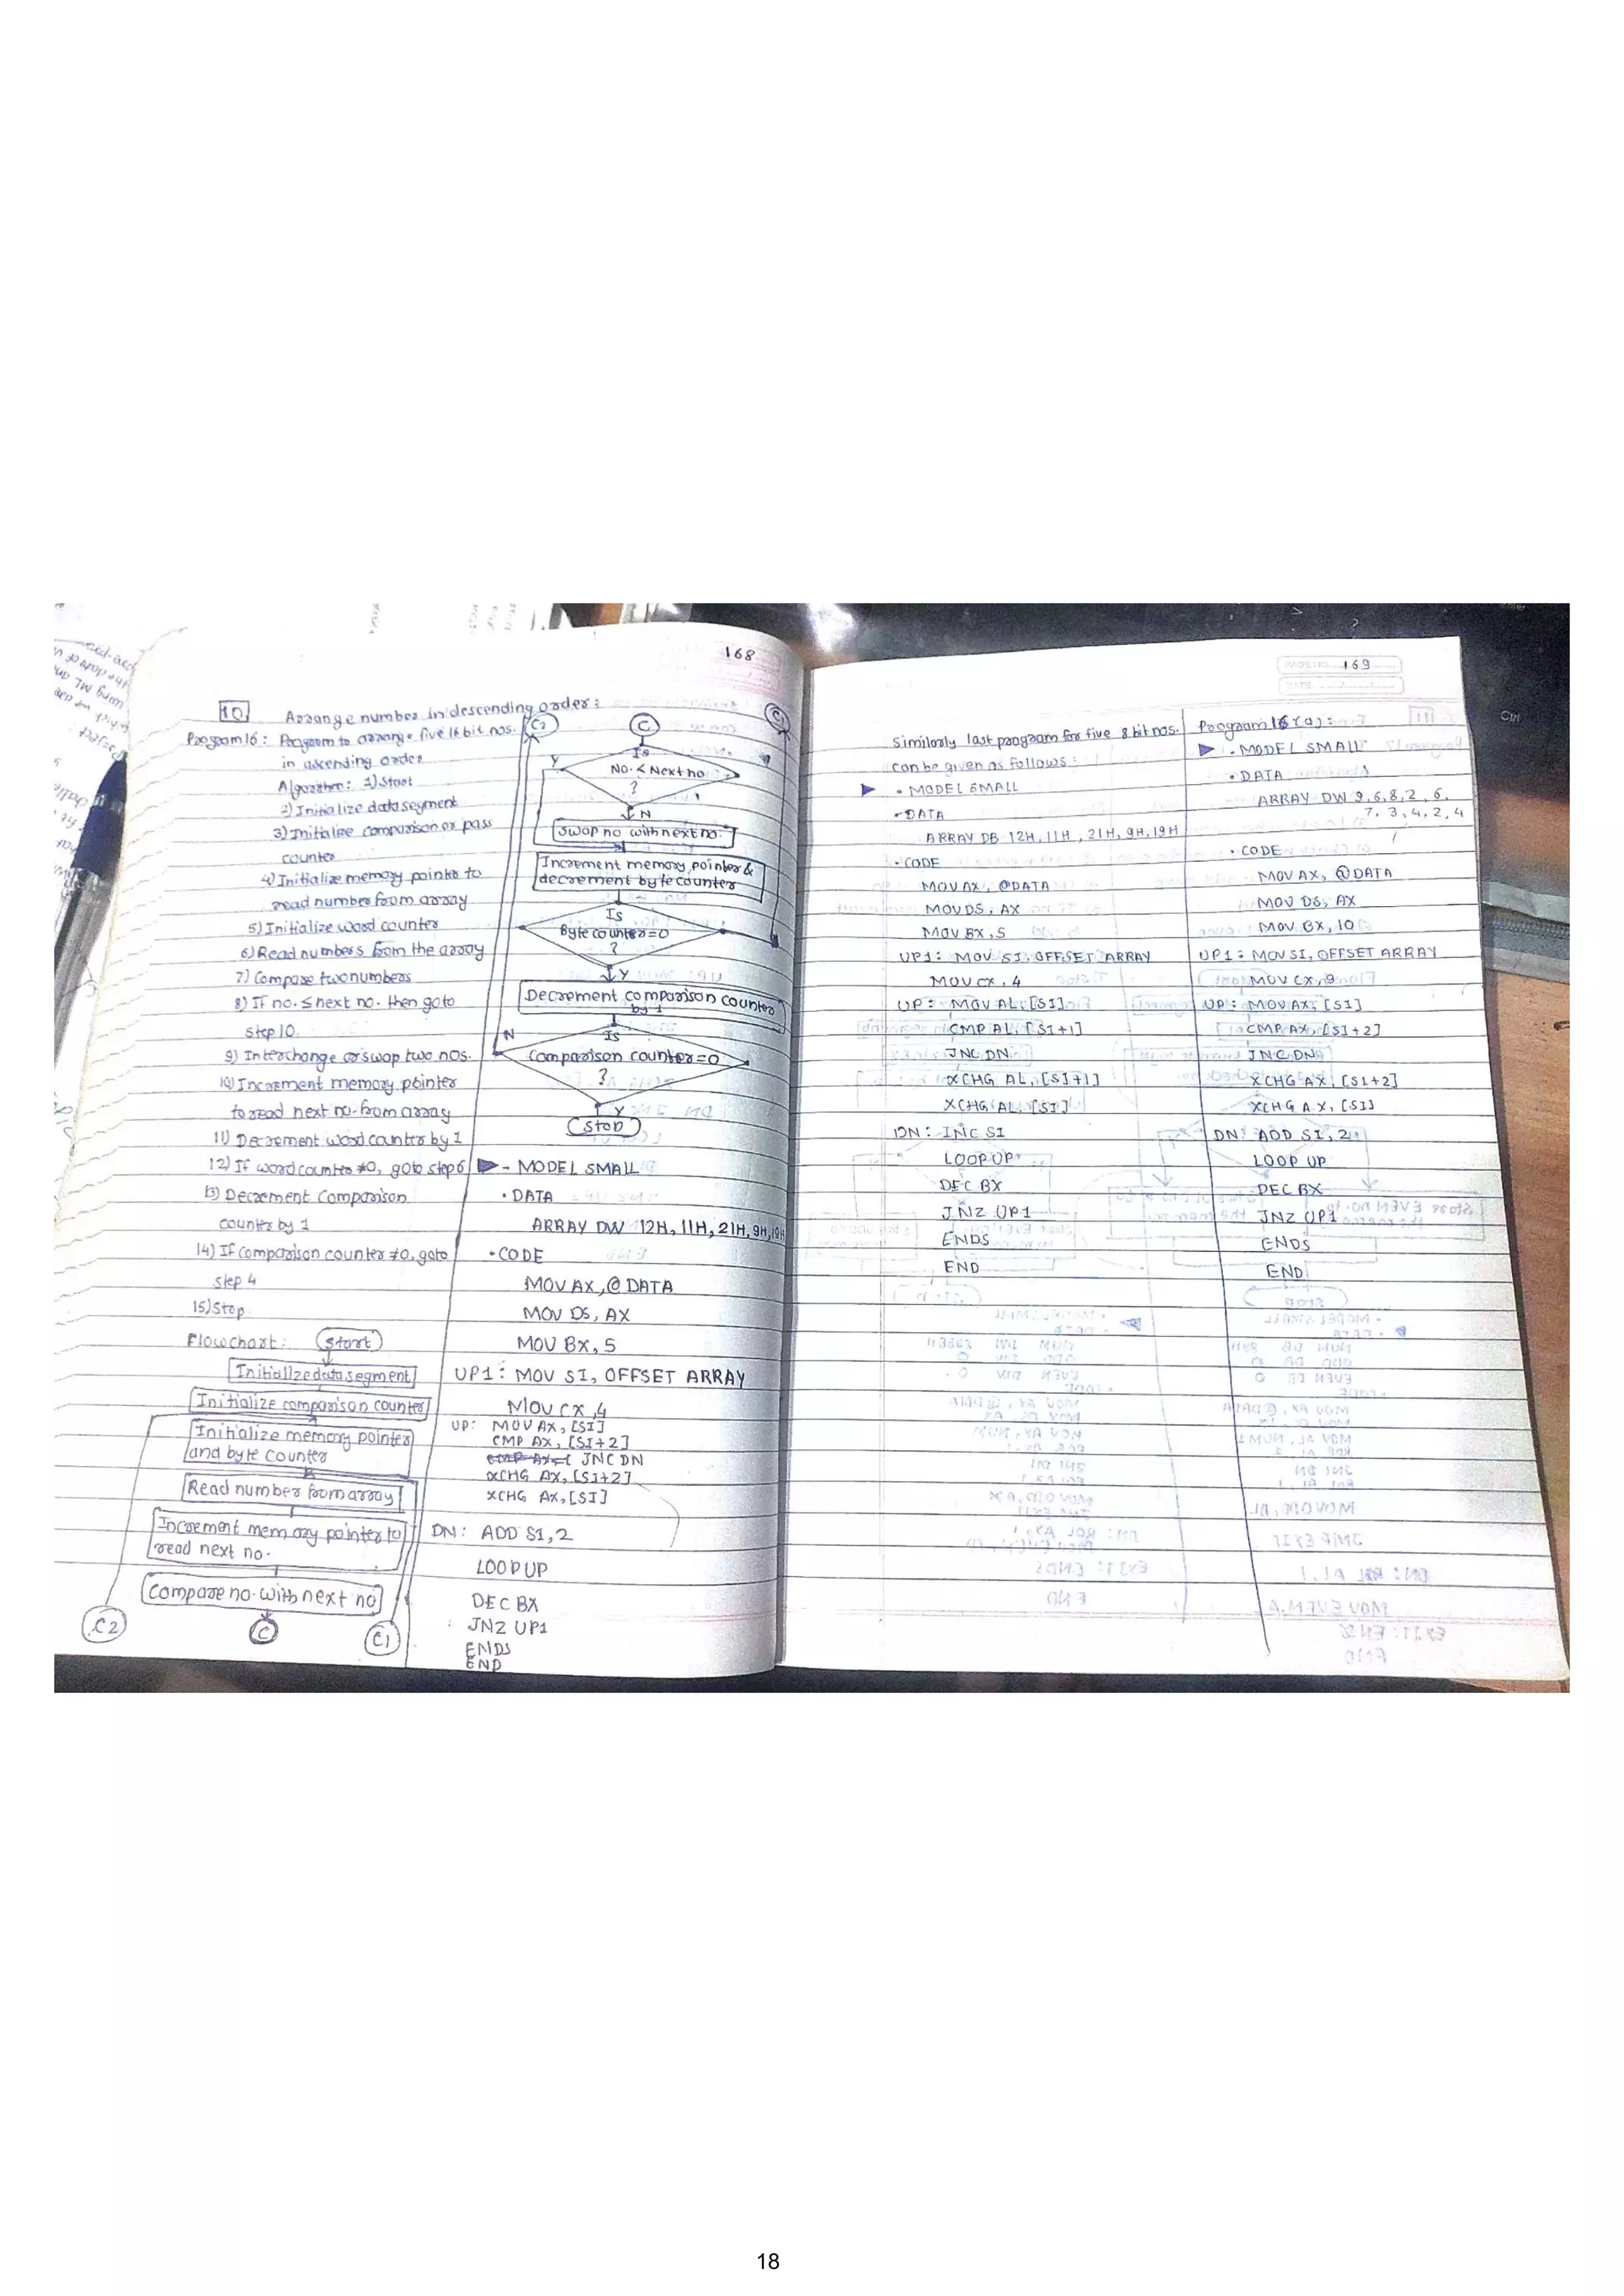 168
10 Arrange number in descending order :
Program 16 : Program to arrange five 16 bit nos.
in ascending order
Algorithm : 1) Start
2) Initialize data segment
3) Initialize comparison or pass
counter
4) Initialize memory pointer to
read number from array
5) Initialize word counter
6) Read numbers from the array
7) Compare two numbers
8) If no. ≤ next no. then goto
step 10
9) Interchange or swap two nos.
10) Increment memory pointer
to read next no. from array
11) Decrement word counter by 1
12) If word counter ≠ 0, goto step 6
13) Decrement Comparison
counter by 1
14) If comparison counter ≠ 0, goto
step 4
15) Stop
Flowchart : Start
Initialize data segment
Initialize comparison counter
Initialize memory pointer
and byte counter
Read number from array
Increment memory pointer to
read next no.
Compare no. with next no
C2 C C1
C2 C C1
Is
No. < Next no
?
Y
N
Swap no with next no.
Increment memory pointer &
decrement byte counter
Is
Byte counter = 0
?
Y
Decrement comparison counter
by 1
N
Is
Comparison counter = 0
?
Y
Stop
- MODEL SMALL
. DATA
ARRAY DW 12H, 11H, 21H, 9H, 19H
. CODE
MOV AX, @ DATA
MOV DS, AX
MOV BX, 5
UP1 : MOV SI, OFFSET ARRAY
MOV CX, 4
UP : MOV AX, [SI]
CMP AX, [SI+2]
JNC DN
XCHG AX, [SI+2]
XCHG AX, [SI]
DN : ADD SI, 2
LOOP UP
DEC BX
JNZ UP1
ENDS
END
169
Similarly last program for five 8 bit nos.
can be given as follows :
. MODEL SMALL
. DATA
ARRAY DB 12H, 11H, 21H, 9H, 19H
. CODE
MOV AX, @DATA
MOV DS, AX
MOV BX, 5
UP1 : MOV SI, OFFSET ARRAY
MOV CX, 4
UP : MOV AL, [SI]
CMP AL, [SI+1]
JNC DN
XCHG AL, [SI+1]
XCHG AL, [SI]
DN : INC SI
LOOP UP
DEC BX
JNZ UP1
ENDS
END
Program 16 (a) :
. MODEL SMALL
. DATA
ARRAY DW 9, 6, 8, 2, 6,
7, 3, 4, 2, 4
. CODE
MOV AX, @DATA
MOV DS, AX
MOV BX, 10
UP1 : MOV SI, OFFSET ARRAY
MOV CX, 9
UP : MOV AX, [SI]
CMP AX, [SI+2]
JNC DN
XCHG AX, [SI+2]
XCHG AX, [SI]
DN : ADD SI, 2
LOOP UP
DEC BX
JNZ UP1
ENDS
END
Ctrl
18